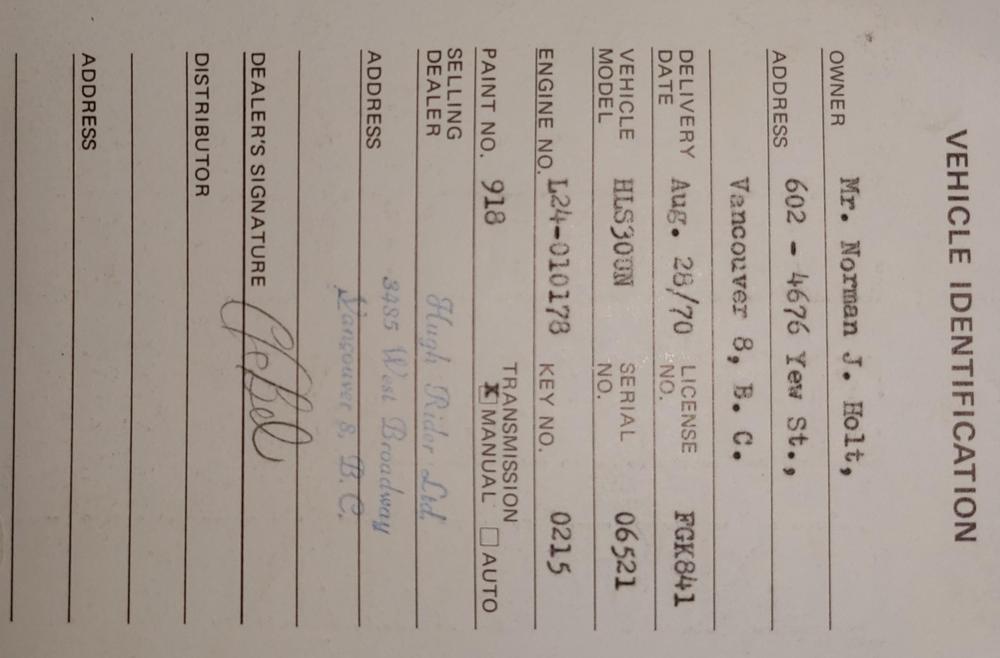 VEHICLE IDENTIFICATION
OWNER Mr. Norman J. Holt,
ADDRESS 602 - 4676 Yew St.,
Vancouver 8, B. C.
DELIVERY DATE Aug. 28/70 LICENSE NO. FGK841
VEHICLE MODEL HLS30UN SERIAL NO. 06521
ENGINE NO. L24-010178 KEY NO. 0215
PAINT NO. 918 TRANSMISSION X MANUAL AUTO
SELLING DEALER Hugh Rider Ltd.
ADDRESS 3485 West Broadway
Vancouver 8, B. C.
DEALER'S SIGNATURE
DISTRIBUTOR
ADDRESS